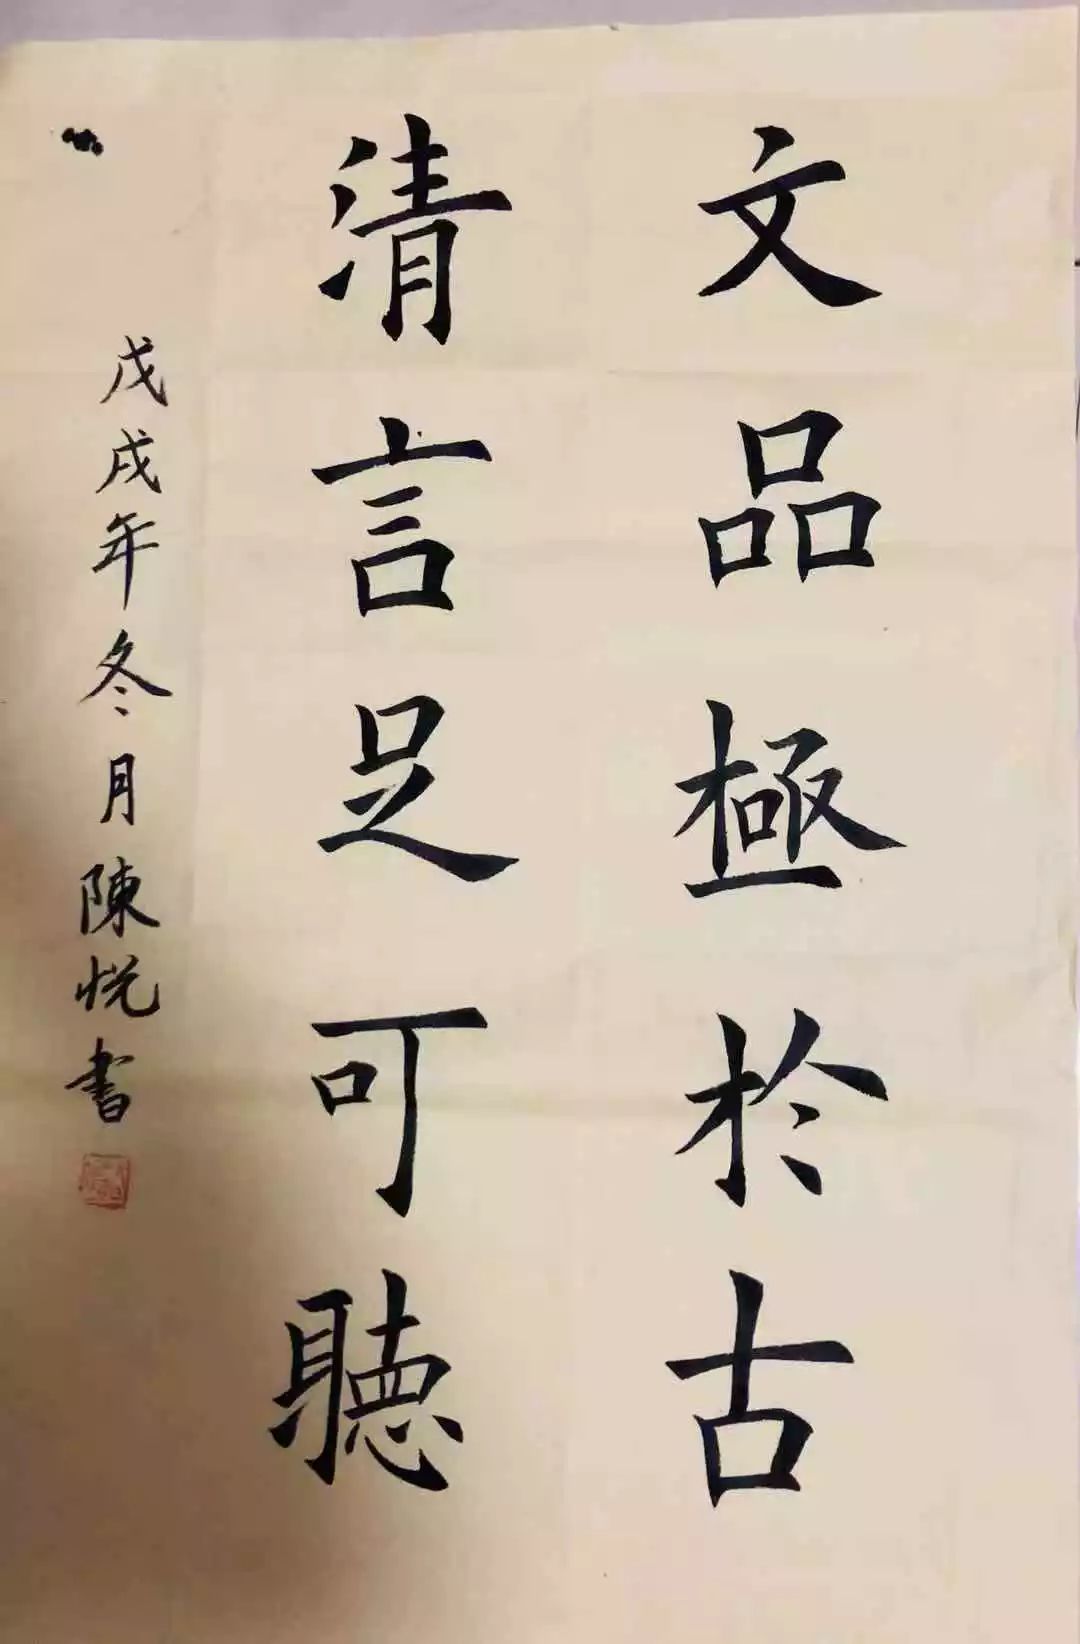 文品極於古
清言足可聽
戊戌年冬月陳悦書